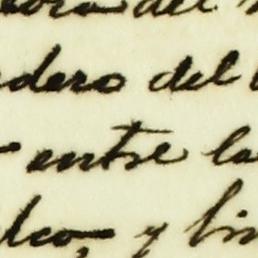 del
dero del
entre la
lco, y lin